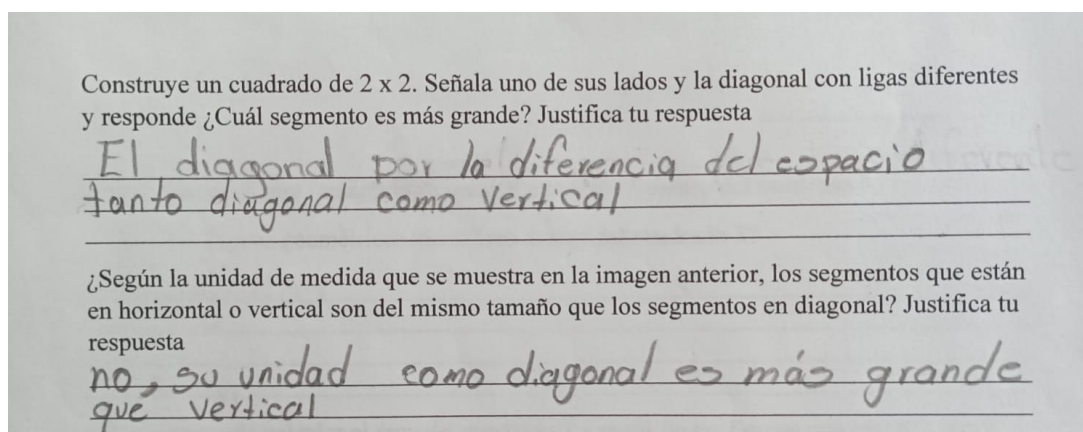 Construye un cuadrado de 2 x 2. Señala uno de sus lados y la diagonal con ligas diferentes
y responde ¿Cuál segmento es más grande? Justifica tu respuesta
El diagonal por la diferencia del espacio
tanto diagonal como vertical
¿Según la unidad de medida que se muestra en la imagen anterior, los segmentos que están
en horizontal o vertical son del mismo tamaño que los segmentos en diagonal? Justifica tu
respuesta
no, su unidad como diagonal es más grande
que vertical